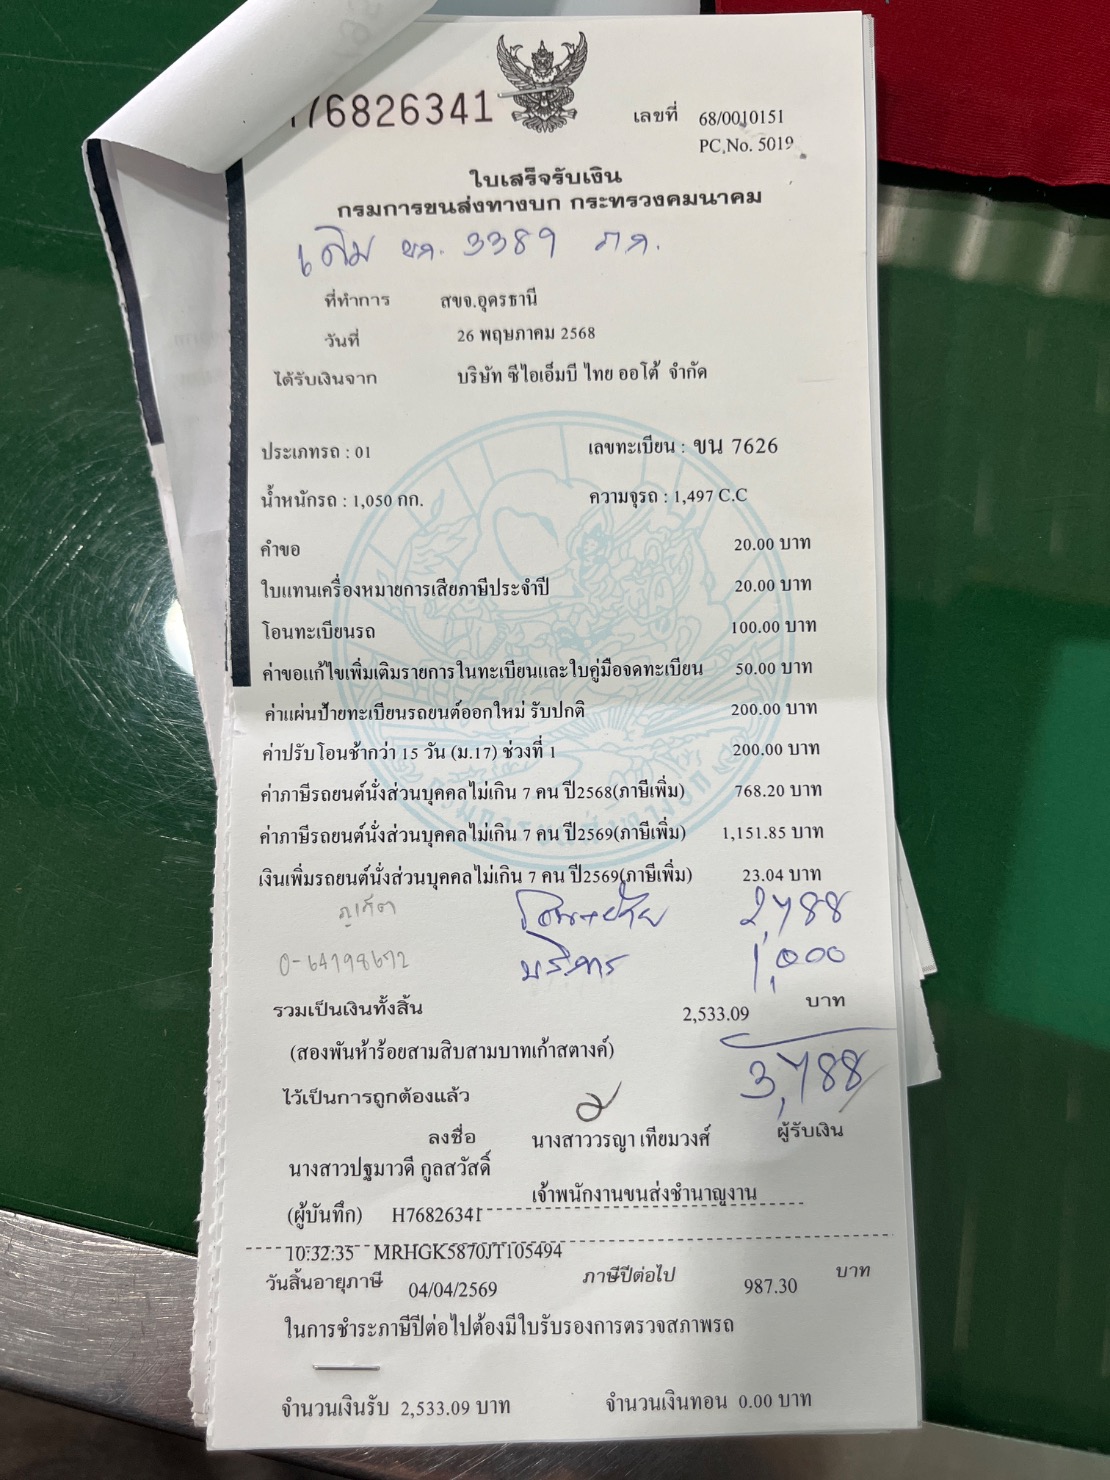 76826341
เลขที่ 68/0010151
PC.No. 5019
ใบเสร็จรับเงิน
กรมการขนส่งทางบก กระทรวงคมนาคม
เดิม ขก. 3389 ภก.
ที่ทำการ สขจ.อุดรธานี
วันที่ 26 พฤษภาคม 2568
ได้รับเงินจาก บริษัท ซีไอเอ็มบี ไทย ออโต้ จำกัด
ประเภทรถ : 01 เลขทะเบียน : ขน 7626
น้ำหนักรถ : 1,050 กก. ความจุรถ : 1,497 C.C
คำขอ 20.00 บาท
ใบแทนเครื่องหมายการเสียภาษีประจำปี 20.00 บาท
โอนทะเบียนรถ 100.00 บาท
ค่าขอแก้ไขเพิ่มเติมรายการในทะเบียนและใบคู่มือจดทะเบียน 50.00 บาท
ค่าแผ่นป้ายทะเบียนรถยนต์ออกใหม่ รับปกติ 200.00 บาท
ค่าปรับโอนช้ากว่า 15 วัน (ม.17) ช่วงที่ 1 200.00 บาท
ค่าภาษีรถยนต์นั่งส่วนบุคคลไม่เกิน 7 คน ปี2568(ภาษีเพิ่ม) 768.20 บาท
ค่าภาษีรถยนต์นั่งส่วนบุคคลไม่เกิน 7 คน ปี2569(ภาษีเพิ่ม) 1,151.85 บาท
เงินเพิ่มรถยนต์นั่งส่วนบุคคลไม่เกิน 7 คน ปี2569(ภาษีเพิ่ม) 23.04 บาท
ภูเก็ต โอน+ย้าย 2,788
บริการ 1,000
รวมเป็นเงินทั้งสิ้น 2,533.09 บาท
(สองพันห้าร้อยสามสิบสามบาทเก้าสตางค์) 3,788
ไว้เป็นการถูกต้องแล้ว
ลงชื่อ นางสาววรญา เทียมวงศ์ ผู้รับเงิน
นางสาวปฐมาวดี กูลสวัสดิ์
เจ้าพนักงานขนส่งชำนาญงาน
(ผู้บันทึก) H76826341
10:32:35 MRHGK5870JT105494
วันสิ้นอายุภาษี 04/04/2569 ภาษีปีต่อไป 987.30 บาท
ในการชำระภาษีปีต่อไปต้องมีใบรับรองการตรวจสภาพรถ
จำนวนเงินรับ 2,533.09 บาท จำนวนเงินทอน 0.00 บาท